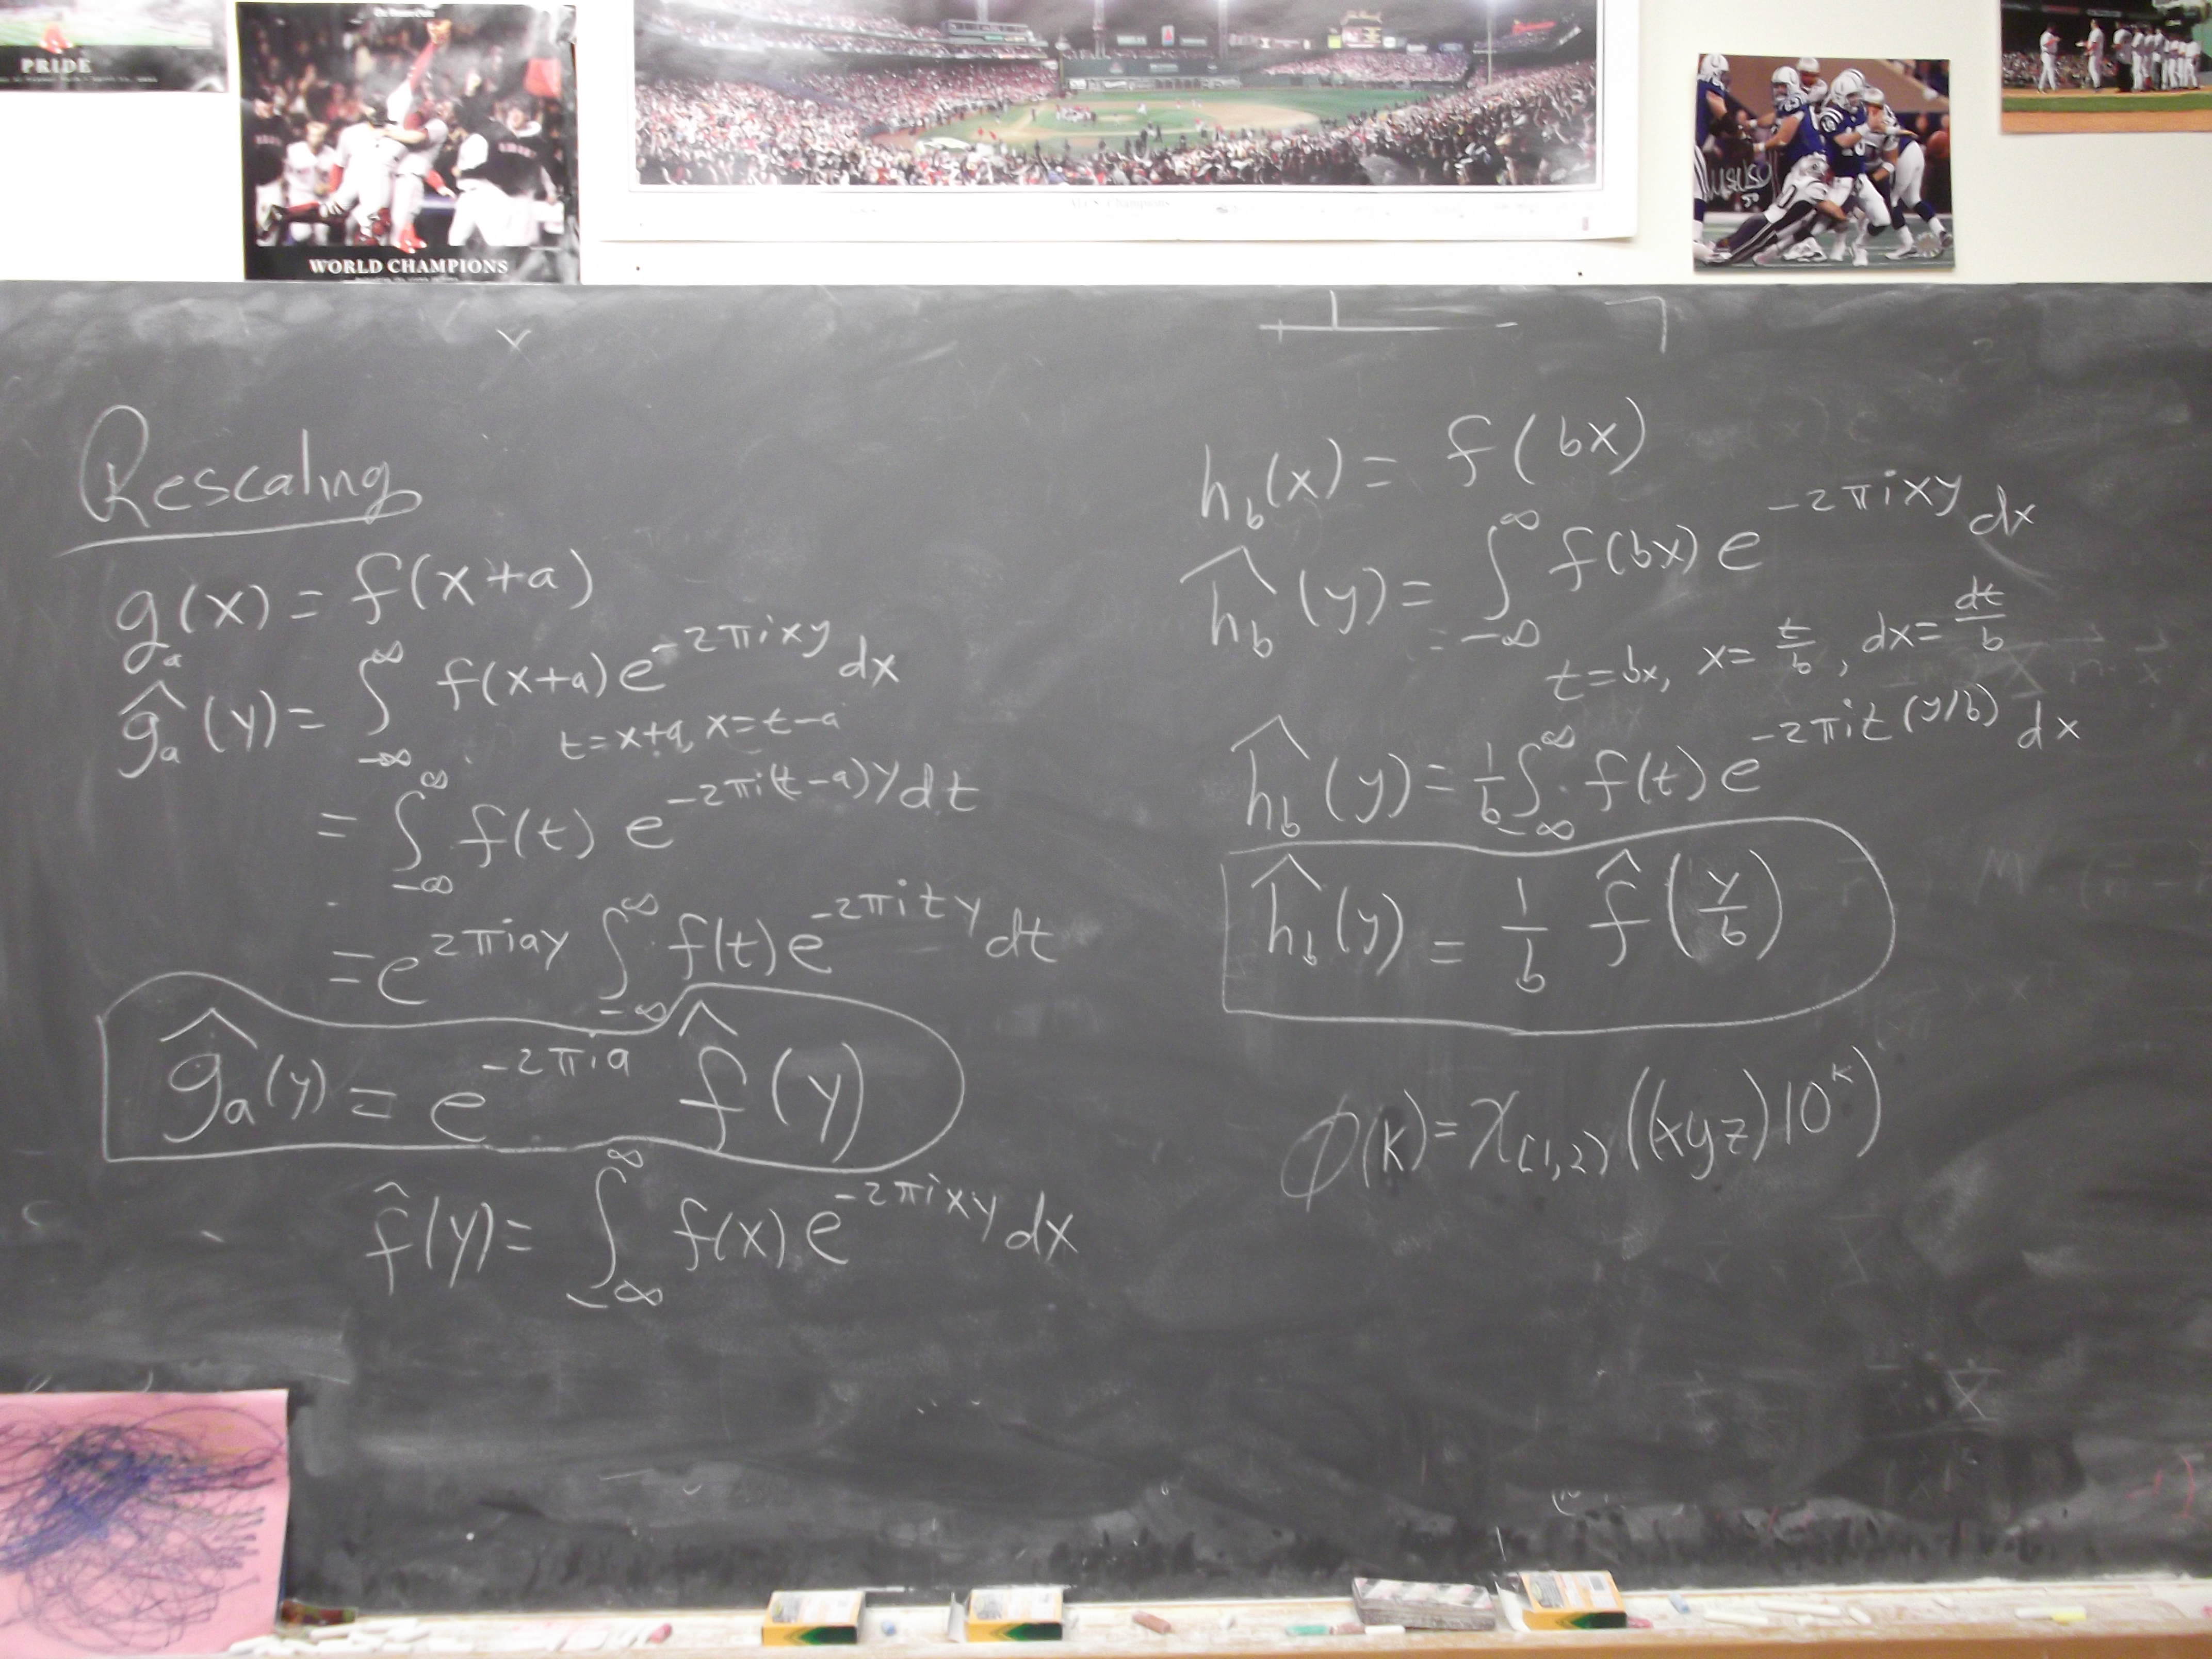 PRIDE
WORLD CHAMPIONS
Rescaling
g_a(x) = f(x+a)
ĝ_a(y) = ∫_{-∞}^{∞} f(x+a) e^{-2πixy} dx
t=x+a, x=t-a
= ∫_{-∞}^{∞} f(t) e^{-2πi(t-a)y} dt
= e^{2πiay} ∫_{-∞}^{∞} f(t) e^{-2πity} dt
ĝ_a(y) = e^{-2πia} f̂(y)
f̂(y) = ∫_{-∞}^{∞} f(x) e^{-2πixy} dx
h_b(x) = f(bx)
ĥ_b(y) = ∫_{-∞}^{∞} f(bx) e^{-2πixy} dx
t=bx, x= t/b, dx= dt/b
ĥ_b(y) = 1/b ∫_{-∞}^{∞} f(t) e^{-2πit(y/b)} dx
ĥ_b(y) = 1/b f̂(y/b)
φ(k) = χ_{(1,2)}((xyz)10^k)